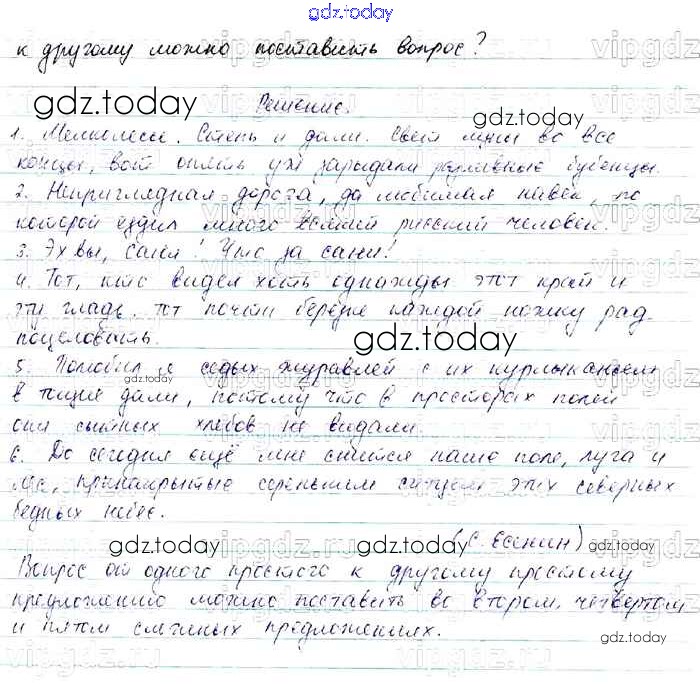 gdz.today
к другому можно поставить вопрос?
gdz.today
Решение.
1. Мелколесье. Степь и дали. Свет луны во все
концы, вот опять уж зарыдали разливные бубенцы.
2. Неприглядная дорога, да любимая навек, по
которой ездил много всякий русский человек.
3. Эх вы, сани! Что за сани!
4. Тот, кто видел хоть однажды этот край и
эту гладь, тот почти берёзке каждой ножку рад
gdz.today
поцеловать.
5. Полюбил я седых журавлей с их курлыканьем
gdz.today
в тощие дали, потому что в просторах полей
они сытных хлебов не видали.
6. До сегодня ещё мне снится наше поле, луга и
лес, принакрытые сереньким ситцем этих северных
бедных небес.
(С. Есенин)
gdz.today gdz.today gdz.today
Вопрос от одного простого к другому простому
предложению можно поставить во втором, четвертом
и пятом сложных предложениях.
gdz.today